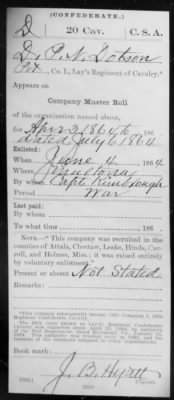 (CONFEDERATE.)
D 20 Cav. C. S. A.
D. P. N. Dotson
Co. L, Lay's Regiment of Cavalry.*
Appears on
Company Muster Roll
of the organization named above,
for Apr 2 1864 to 186
dated July 6 1864
Enlisted:
When June 4 1864.
Where
By whom Capt. Kimbrough
Period War
Last paid:
By whom
To what time 186
NOTE.—This company was recruited in the
counties of Attala, Choctaw, Leake, Hinds, Car-
roll, and Holmes, Miss.; it was raised entirely
by voluntary enlistment.
Present or absent Not Stated
Remarks:
Book mark:
J. B. Hyatt
Copyist.